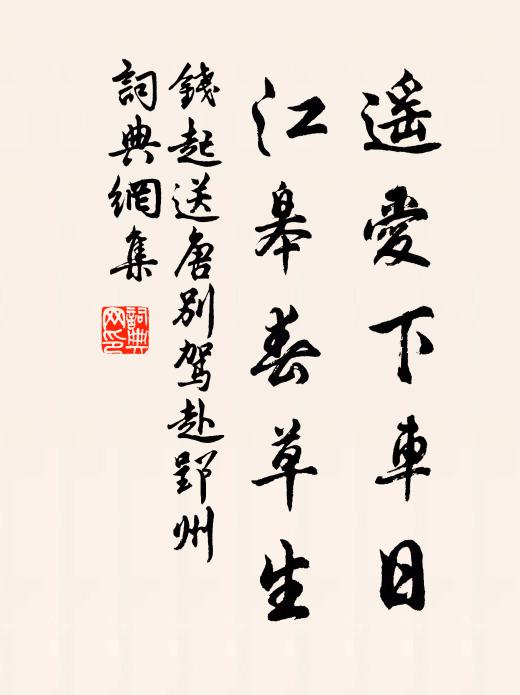 遥愛下車日
江皋春草生
錢起送唐別駕赴郢州
詞典網集
詞典网印